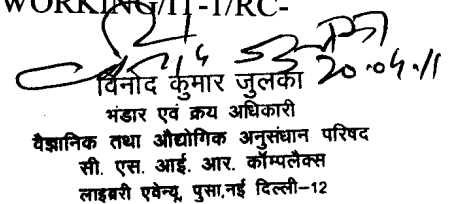 WORKING/IT-1/RC-
20.04.11
विनोद कुमार जुलका
भंडार एवं क्रय अधिकारी
वैज्ञानिक तथा औद्योगिक अनुसंधान परिषद
सी. एस. आई. आर. कॉम्पलैक्स
लाइब्ररी एवेन्यू, पुसा,नई दिल्ली-12